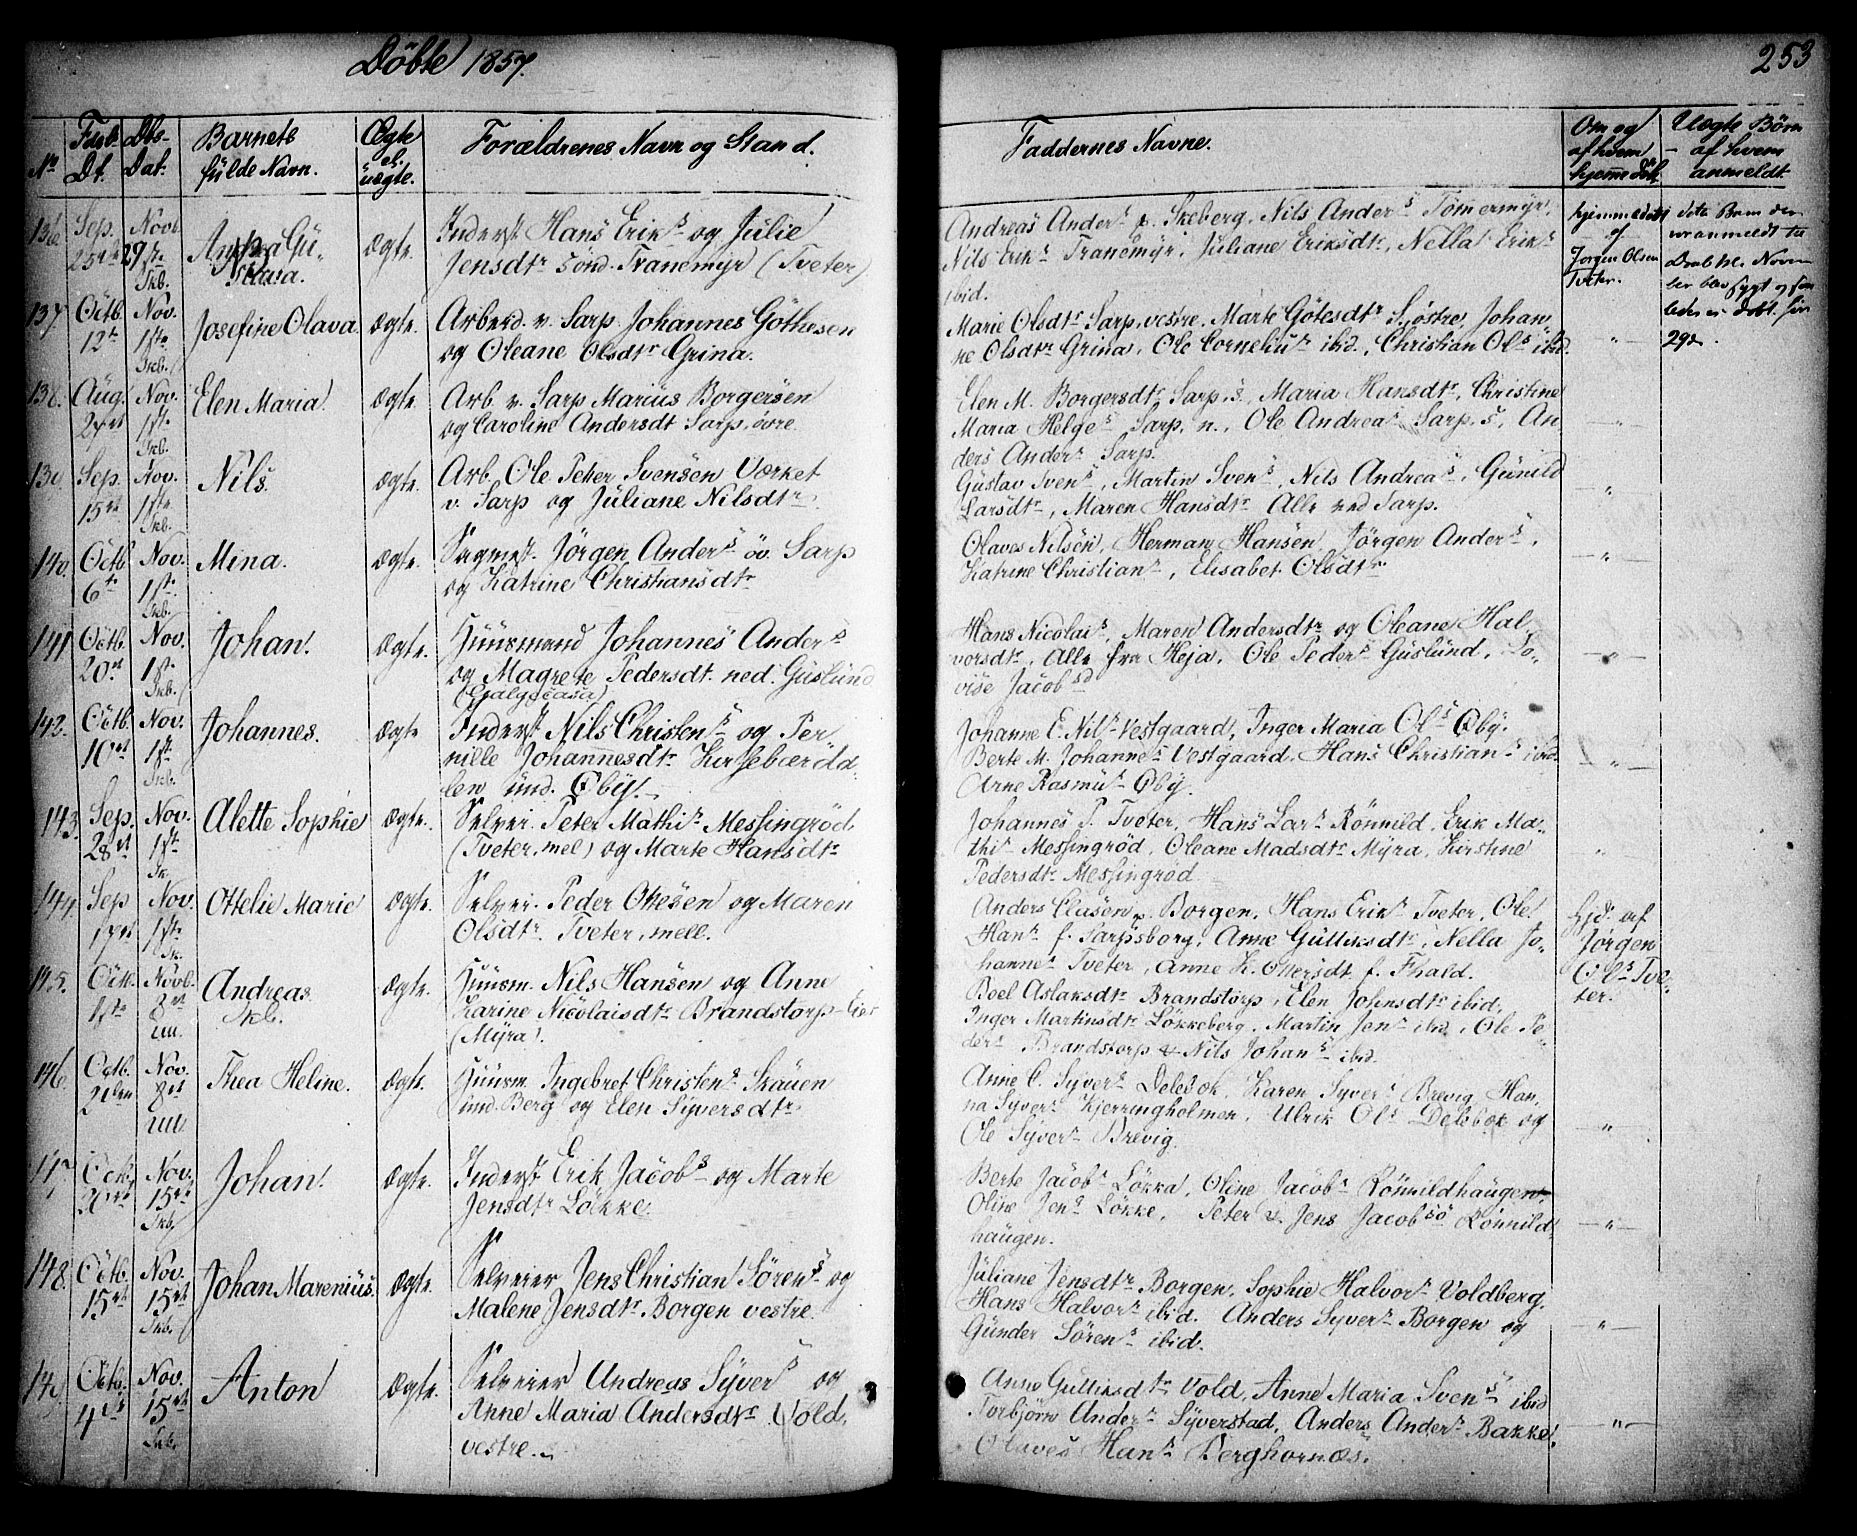 Döbte 1857.
253
No
Föds.
Dt.
Dbs-
Dat.
Barnets
fulde Navn.
Ægte
el.
uægte.
Forældrenes Navn og Stand.
Faddernes Navne.
Om og
af hvem
hjemmedöbt
Uægte Börn
af hvem
anmeldt
136.
Sep.
25de
Novb.
29ste
Skb.
Ægte.
Inderst Hans Eriks og Julie
Jensdtr sönd. Tranemyr (Tveter)
Andreas Anders p. Skeberg, Nils Anders Tömermyr,
Nils Eriks Tranemyr, Juliane Eriksdtr, Nella Eriks
ibid.
hjemmedöbt
af
Jörgen Olsen
Tveter.
137.
Octb.
12te
Nov.
1ste
Skb.
Josefine Olava
Ægte.
Arbeid. v. Sarp. Johannes Göthesen
og Oleane Olsdtr Grina.
Marie Olsdtr Sarp, vestre, Marte Götesdtr Sjöstre, Johan,
ne Olsdtr Grina, Ole Cornelius ibid., Christian Ols ibid.
"
29de.
138.
Aug.
Nov.
1ste
Skb.
Elen Maria.
Ægte.
Arb v. Sarp Marius Borgersen
og Caroline Andersdt Sarp, övre.
Elen M. Borgersdtr Sarp. s., Maria Hansdtr, Christine
Maria Helges Sarp. n., Ole Andreas Sarp. s, An
ders Anders Sarp.
"
139.
Sep.
15de
Nov.
1ste
Skb.
Nils.
Ægte.
Arb. Ole Peter Svensen Værket
v. Sarp og Juliane Nilsdtr.
Gustav Svens, Martin Svens, Nils Andreas, Gunild
Larsdtr, Maren Hansdtr Alle ved Sarp.
"
140.
Octb
6te
Nov.
1ste
Skb.
Mina.
Ægte.
Sagmest. Jörgen Anders öv. Sarp
og Katrine Christiansdtr
Olaves Nilsen, Herman Hansen, Jörgen Anders,
Katrine Christians, Elisabet Olsdtr
"
141.
Octb.
20de
Nov.
1ste
Skb.
Johan.
Ægte.
Huusmand Johannes Anders
og Magrete Pedersdt. ned. Guslund
Hans Nicolais, Maren Andersdtr og Oleane Hal,
vorsdtr, Alle fra Heja, Ole Peders Guslund, Lo-
vise Jacobsd
"
142.
Octb.
10de
Nov.
1ste
Skb.
Johannes.
Ægte
Inderst Nils Christens og Per
nille Johannesdtr Kirsebærdda-
len und. Öby.
Johanne E. Nils Vestgaard, Inger Maria Ols Öby.
Berte M. Johannes Vestgaard, Hans Christians ibid.
Arne Rasmus Öby.
"
143.
Sep.
28de
Nov.
1ste
Sk.
Alette Sophie
Ægte.
Selvei. Peter Mathis Messingröd
(Tveter, mel) og Marte Hansdtr
Johannes P. Tveter, Hans Lars Rönnild, Erik Ma-
this Messingröd, Oleane Madsdtr Myra, Kirstine
Pedersdtr Messingröd
"
144.
Sep
Nov.
1ste
Sk.
Ottelie Marie
Ægte.
Selvei. Peder Ottesen og Maren
Olsdtr. Tveter, mell.
Anders Clasen p. Borgen, Hans Eriks Tveter, Ole
Hans f. Sarpsborg, Anne Gulliksdtr, Nella Jo-
hannes Tveter, Anne K. Ottersdt. f. Fhald.
hjd. af
Jörgen
Ols Tve-
ter.
145.
Octb.
1ste
Novb.
8de
Ull.
Andreas
Skb.
Ægte.
Huusm. Nils Hansen og Anne
Karine Nicolaisdtr Brandstorp-Eier
(Myra).
Boel Aslaksdtr Brandstorp, Elen Johnsdtr ibid.
Inger Martinsdtr Lökkeberg, Martin Jens ibid, Ole Pe-
ders Brandstorp & Nils Johans ibid.
146.
Octb.
Nov.
8de
Ull
Thea Heline.
Ægte.
Huusm. Ingebret Christens Skauen
und. Berg og Elen Syversdtr.
Anne C. Syvers Delebök, Karen Syvers Brevig, Han,
na Syvers Kjerringholmen, Ulrik Ols Delebök og
Ole Syvers Brevig.
"
147
Octb.
Nov.
15de
Skb.
Johan.
Ægte.
Inderst Erik Jacobs og Marte
Jensdtr Lökke.
Berte Jacobs Lökka, Oline Jacobs Rönnildhaugen,
Oline Jens Lökke, Peter & Jens Jacobs Rönnild,
haugen.
"
148.
Octb.
15de
Nov.
15de
Skb.
Johan Marenius.
Ægte.
Selveier Jens Christian Sörens og
Malene Jensdtr. Borgen vestre.
Juliane Jensdtr Borgen, Sophie Halvors Voldberg,
Hans Halvors ibid. Anders Syvers Borgen og
Gunder Sörens ibid.
"
149.
Octb.
4de
Nov.
15de
Skb.
Anton
Ægte.
Selveier Andreas Syvers og
Anne Maria Andersdtr. Vold,
vestre.
Anne Gulliksdtr Vold, Anne Maria Svens ibid
Torbjörn Anders Syverstad, Anders Anders Bakke,
Olaves Hans Berghornæs.
"